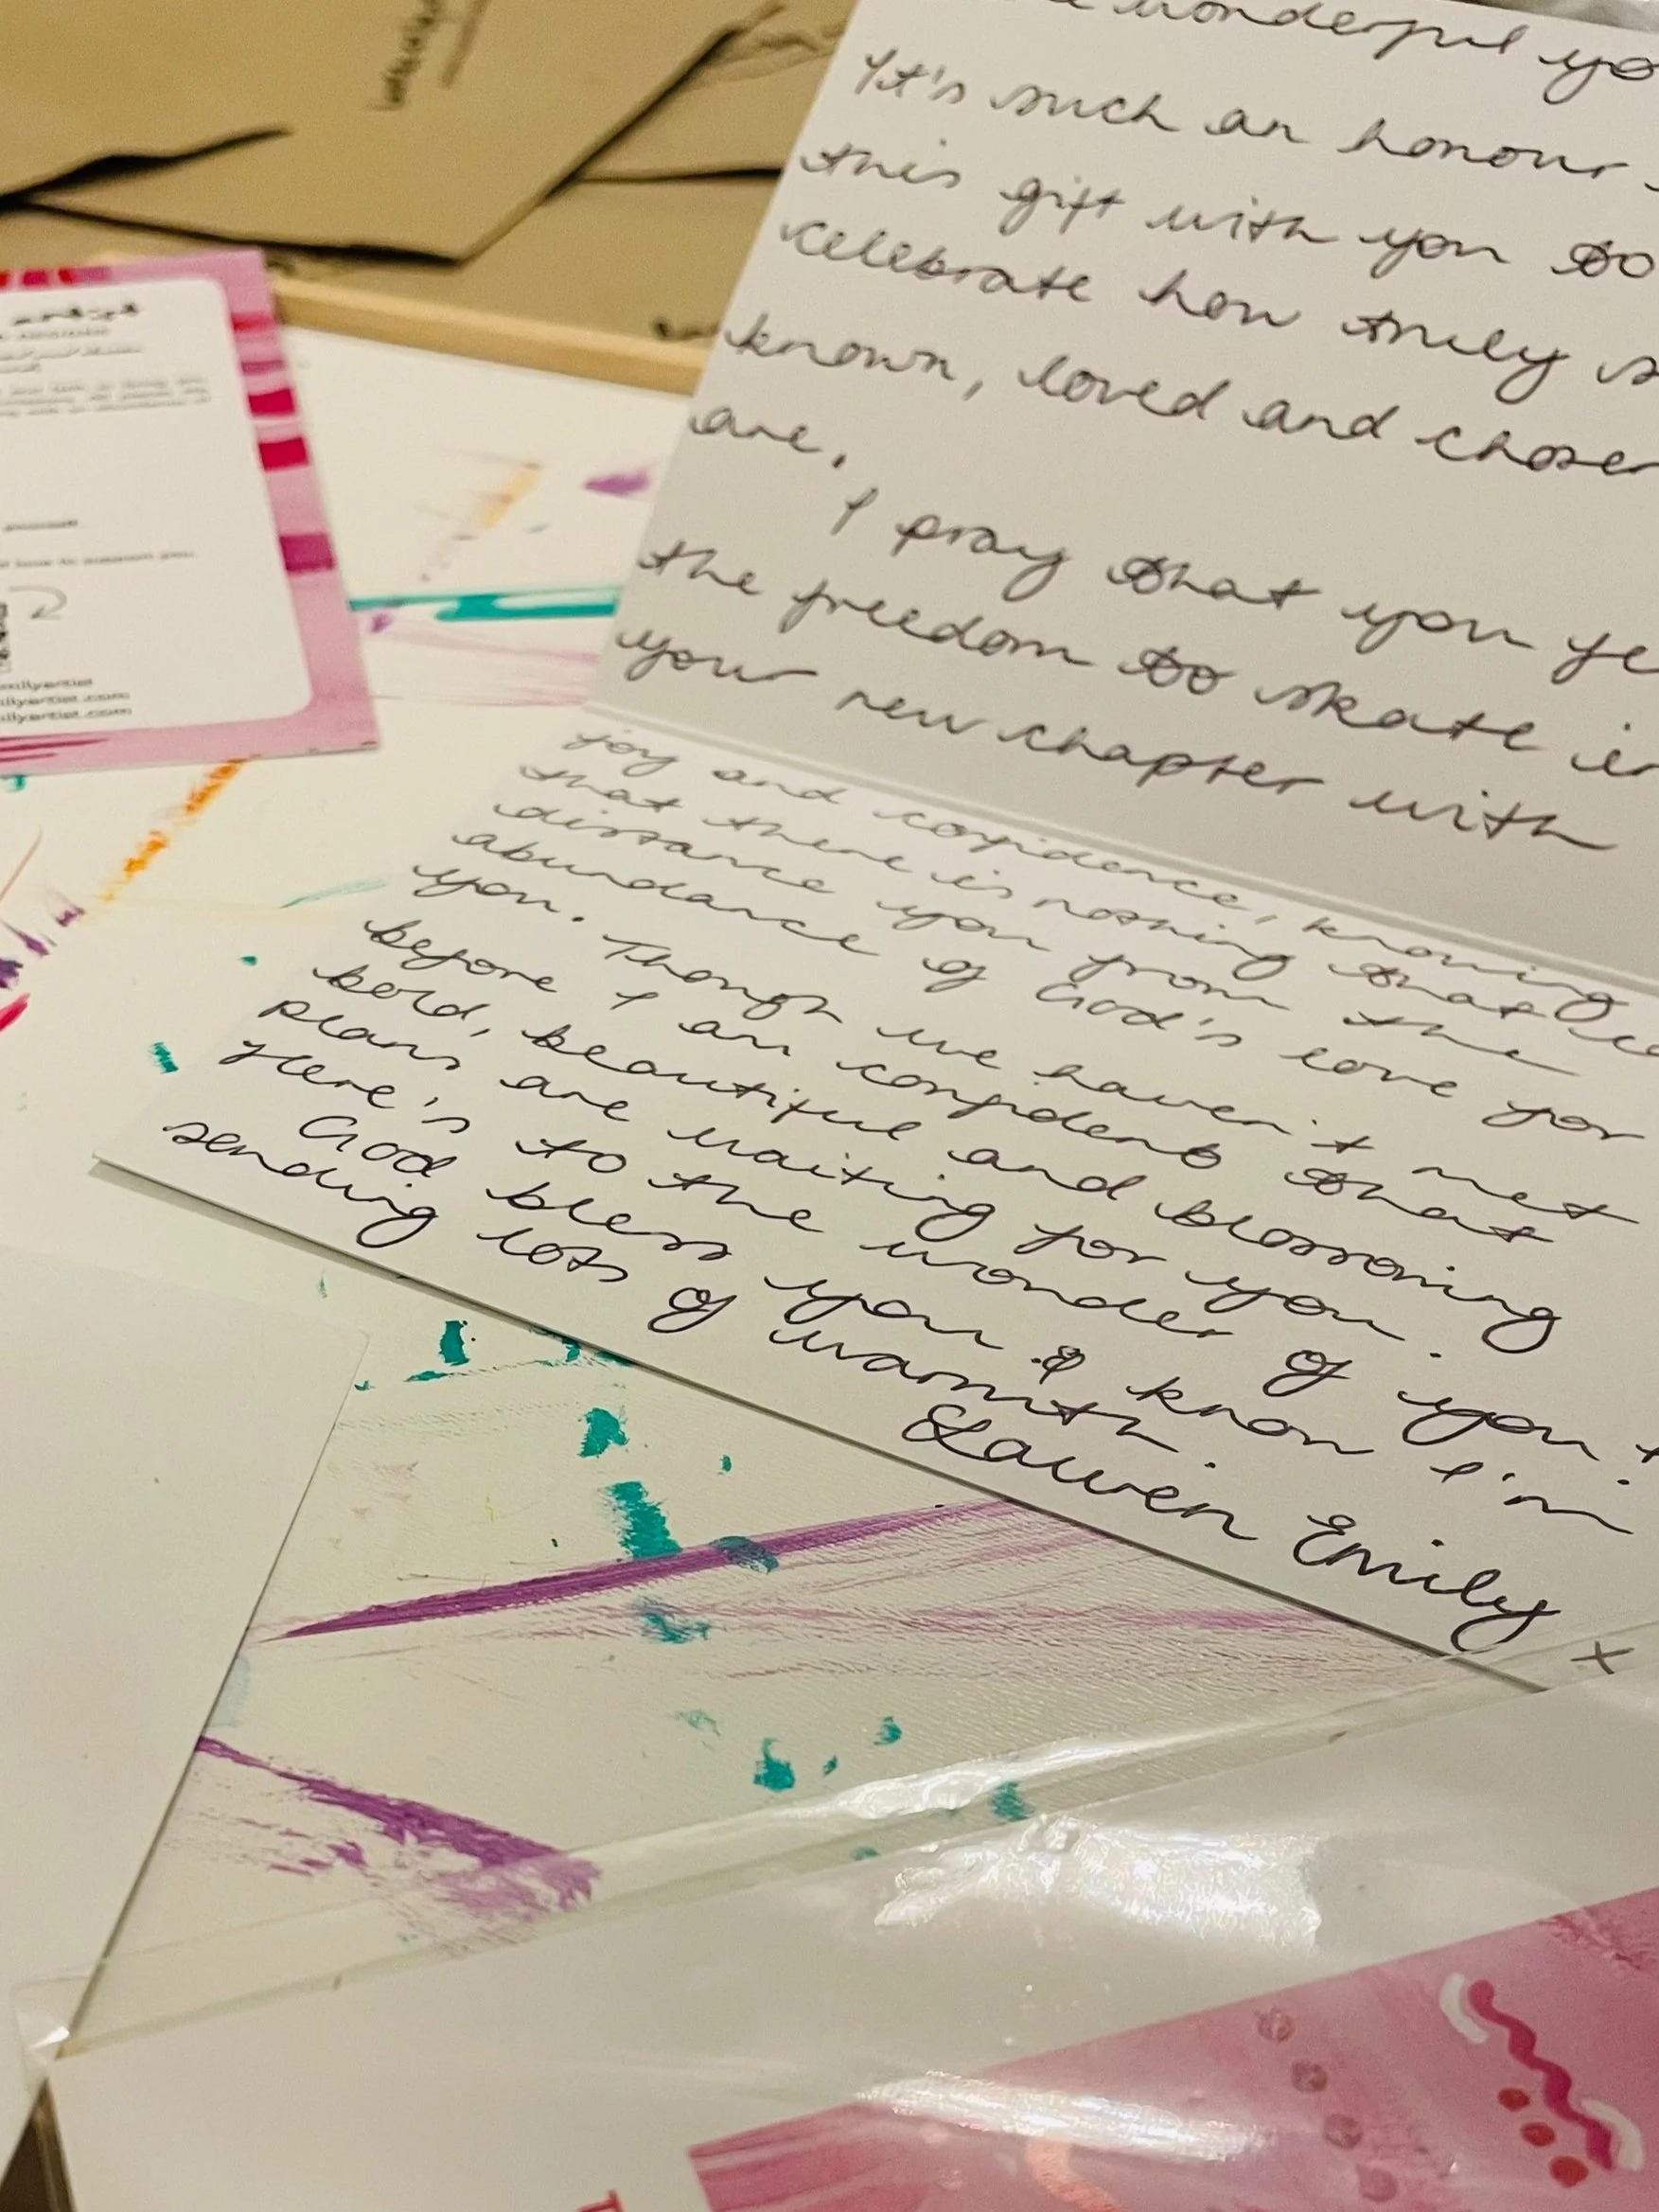 wonderful yo
It's such an honour
this gift with you to
celebrate how truly s
known, loved and chosen
are.
I pray that you fe
the freedom to skate in
your new chapter with
joy and confidence, knowing
that there is nothing that ca
distance you from the
abundance of God's love for
you. Though we haven't met
before I am confident that
bold, beautiful and blossoming
plans are waiting for you.
Here's to the wonder of you!
God bless you & know I'm
sending lots of warmth.
Lauren Emily
x
milyartist
ilyartist.com
ilyartist.com